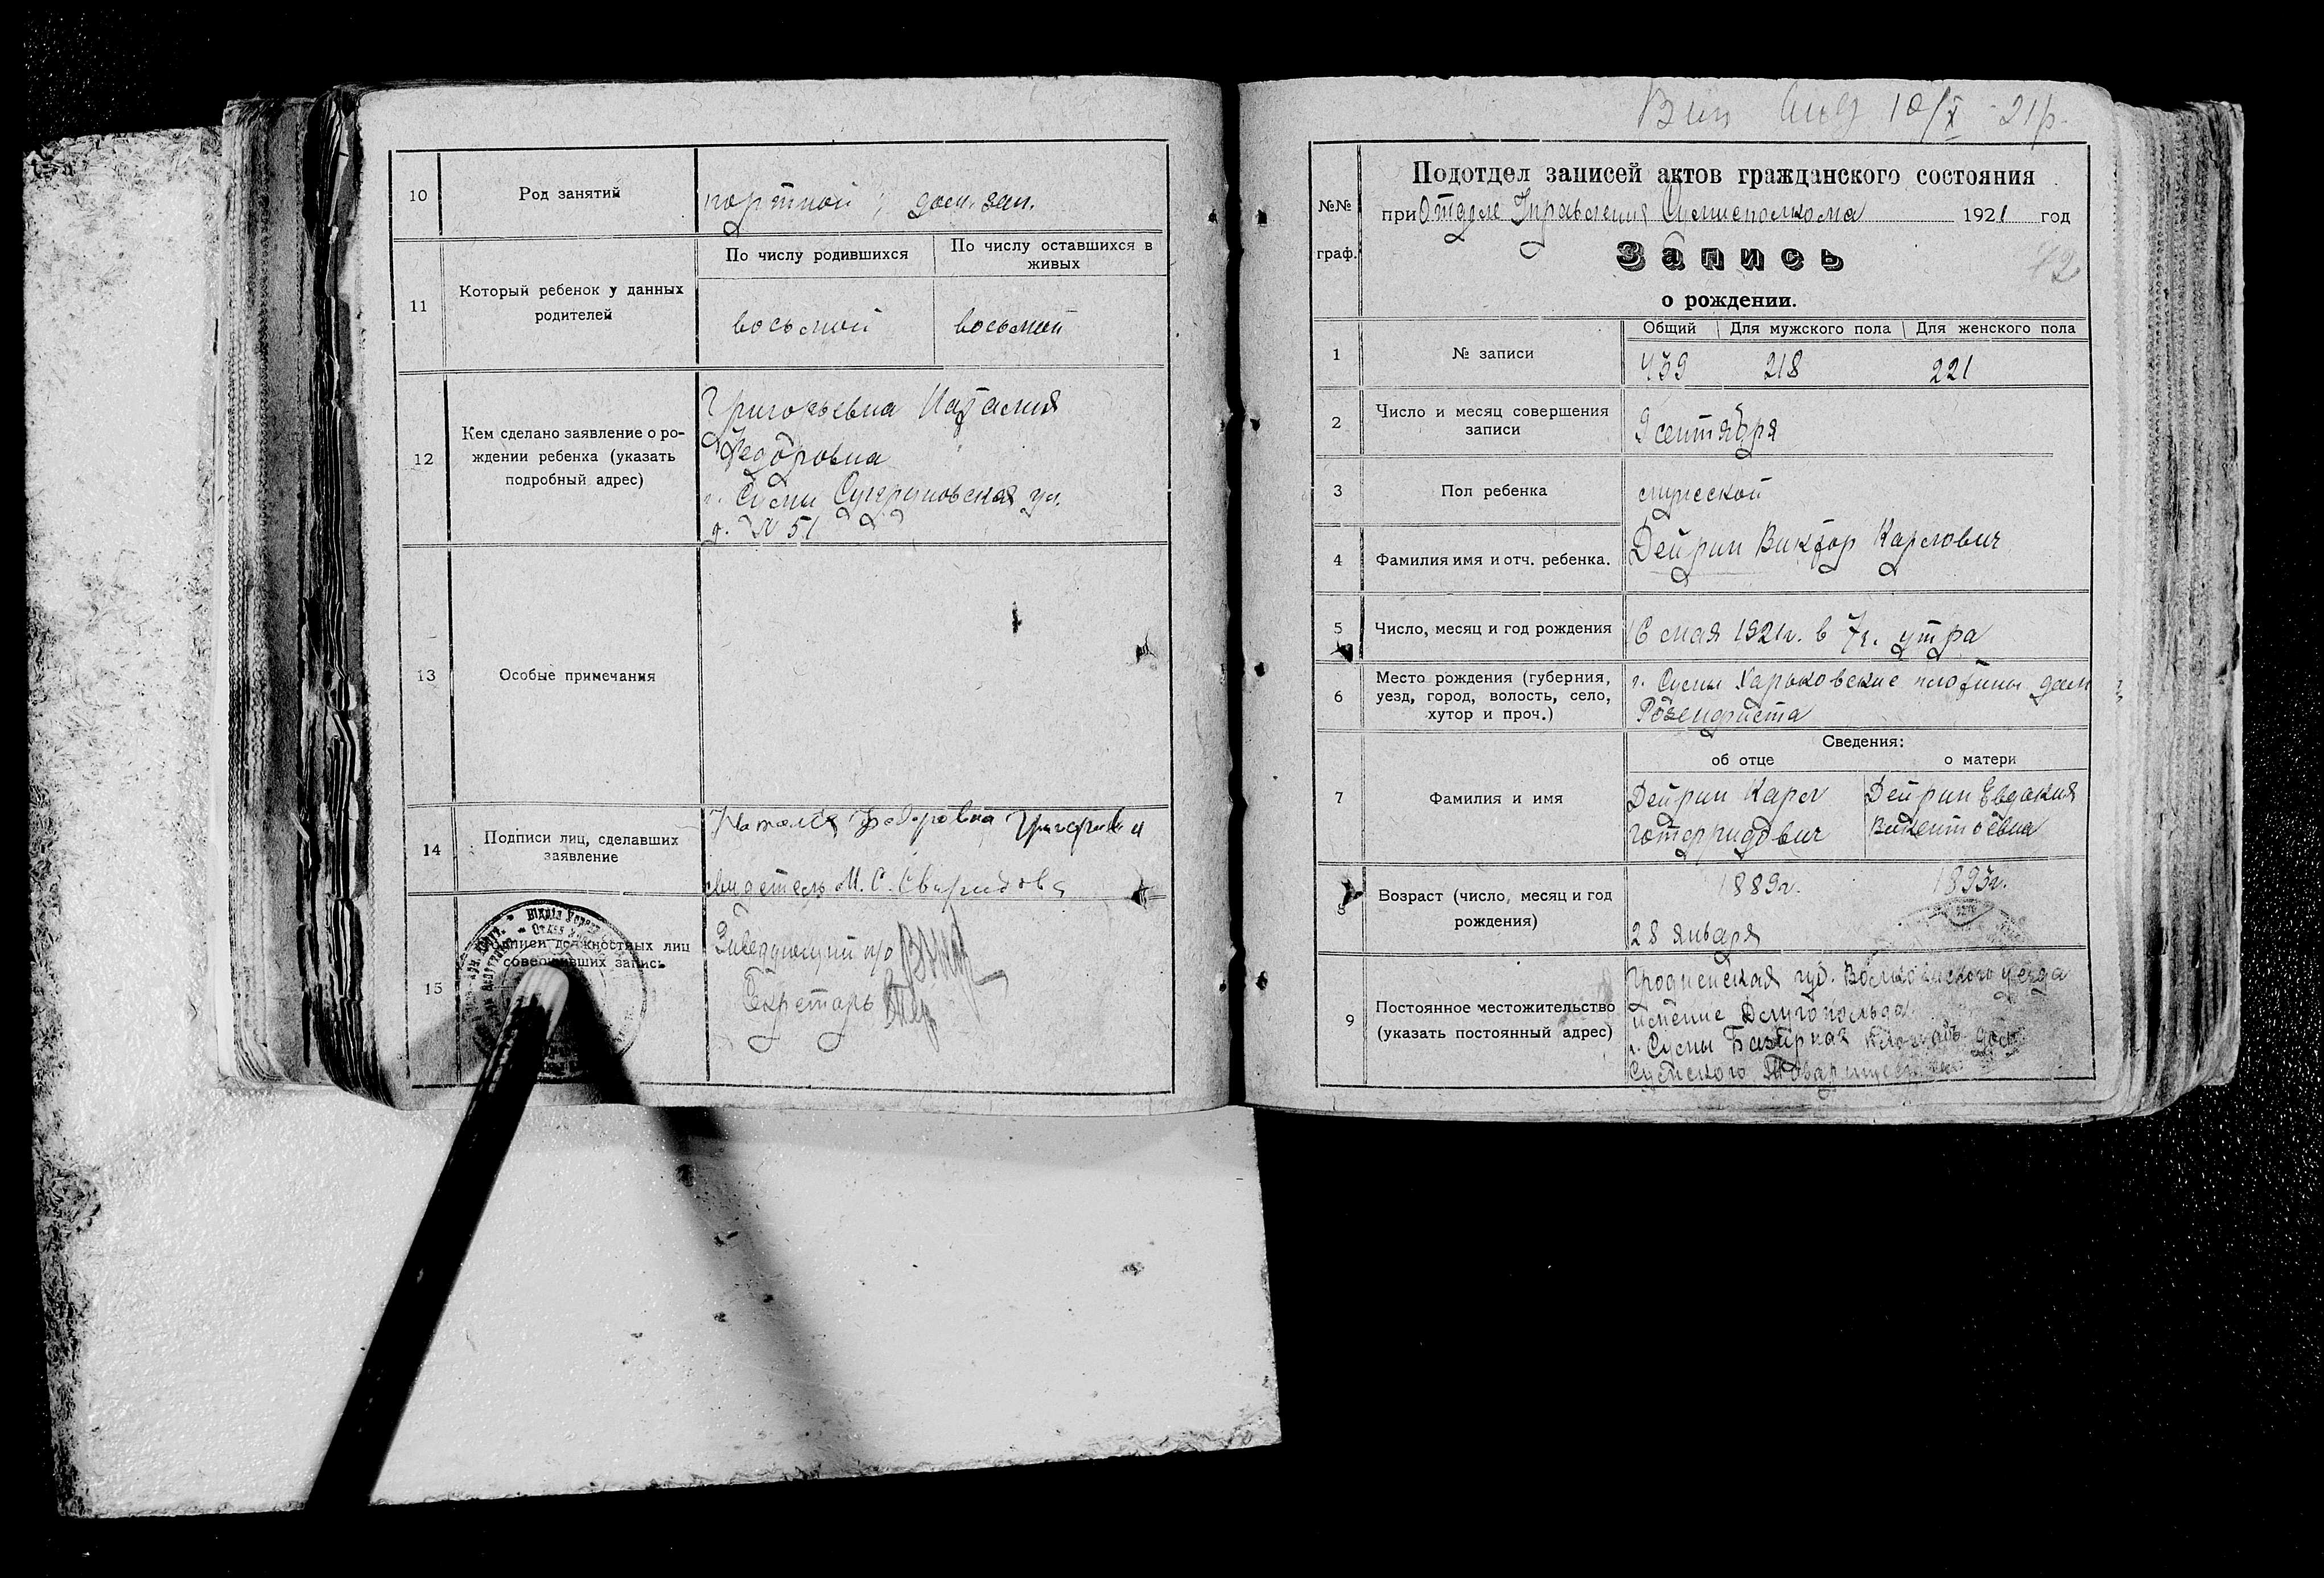 10
Род занятий
портной ; дом. зан.
11
Который ребенок у данных
родителей
По числу родившихся
По числу оставшихся в
живых
восьмой
восьмой
12
Кем сделано заявление о ро-
ждении ребенка (указать
подробный адрес)
Григорьевна Наталия
Федоровна
г. Сумы ул.
д. № 51
13
Особые примечания
14
Подписи лиц, сделавших
заявление
Наталия Федоровна
свидетель М. С. Свиридова
15
Подписи должностных лиц
совершивших запись
Заведующий п/о
Секретарь
10/X 21р.
№№
граф.
Подотдел записей актов гражданского состояния
при Отделе Управления Сумисполкома 1921 год
Запись
о рождении.
1
№ записи
Общий
Для мужского пола
Для женского пола
439
218
221
2
Число и месяц совершения
записи
9 сентября
3
Пол ребенка
мужской
4
Фамилия имя и отч. ребенка.
Дейрин Виктор Карлович
5
Число, месяц и год рождения
16 мая 1921г. в 7ч. утра
6
Место рождения (губерния,
уезд, город, волость, село,
хутор и проч.)
г. Сумы Харьковские дом
7
Фамилия и имя
Сведения:
об отце
о матери
Дейрин Карл
Готфридович
Дейрин Евдокия
Викентьевна
8
Возраст (число, месяц и год
рождения)
1889г.
28 января
1893г.
9
Постоянное местожительство
(указать постоянный адрес)
Гродненская губ. уезда
имение
г. Сумы Базарная площадь дом
Сумского Товарищества